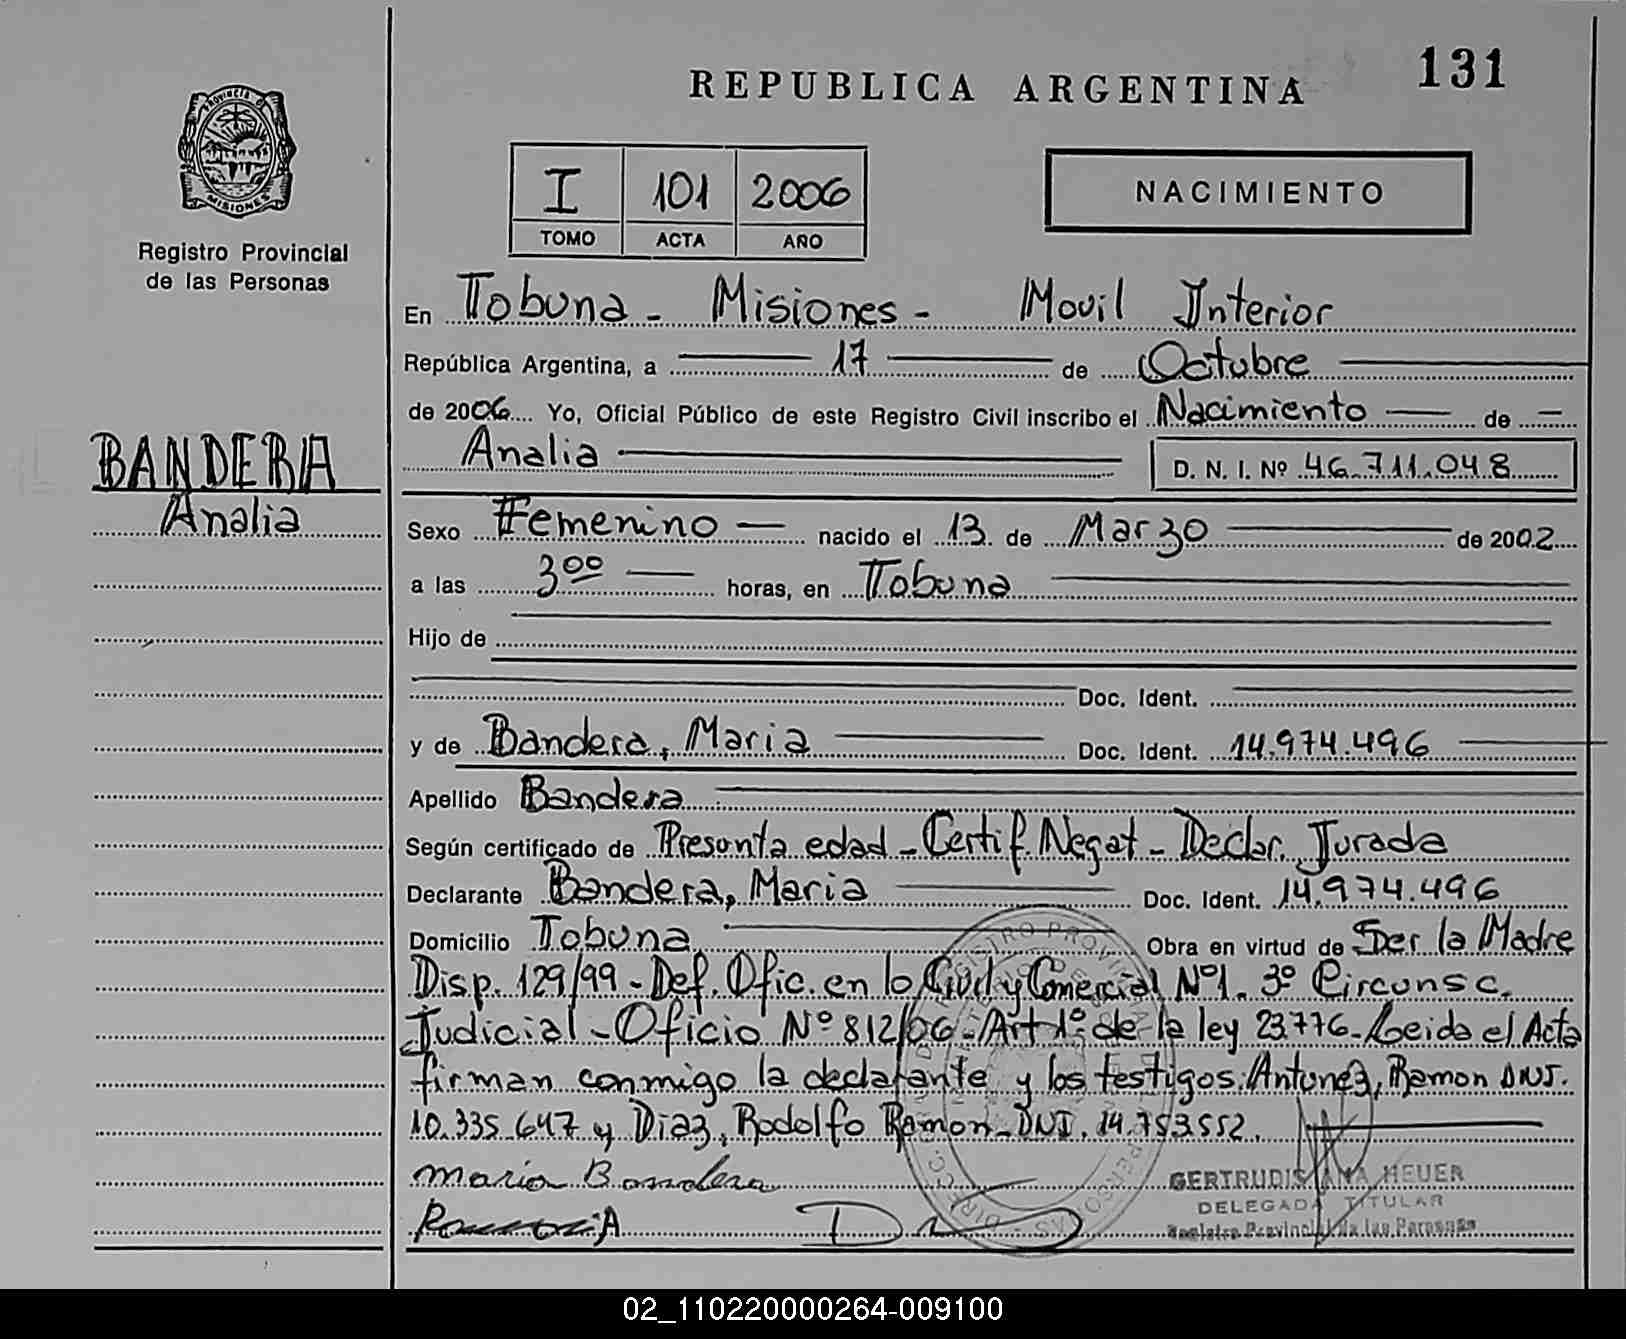 REPUBLICA ARGENTINA
131
PROVINCIA D MISIONES
Registro Provincial
de las Personas
I 101 2006
TOMO ACTA AÑO
NACIMIENTO
En Tobuna - Misiones - Movil Interior
República Argentina, a 17 de Octubre
de 2006 Yo, Oficial Público de este Registro Civil inscribo el Nacimiento de
Analia D. N. I. Nº 46.711.048
BANDERA
Analia
Sexo Femenino nacido el 13 de Marzo de 2002
a las 3 00 horas, en Tobuna
Hijo de
Doc. Ident.
y de Bandera, Maria Doc. Ident. 14.974.496
Apellido Bandera
Según certificado de Presunta edad - Certif. Negat - Declar. Jurada
Declarante Bandera, Maria Doc. Ident. 14.974.496
Domicilio Tobuna Obra en virtud de Ser la Madre
Disp. 129/99 - Def. Ofic. en lo Civil y Comercial Nº1. 3º Circunsc.
Judicial - Oficio Nº 812/06 - Art 1º de la ley 23.776 - Leida el Acta
firman conmigo la declarante y los testigos: Antunez, Ramon DNI.
10.335.647 y Diaz, Rodolfo Ramon - DNI. 14.753.552.
Maria Bandera
GERTRUDIS ANA HEUER
DELEGADA TITULAR
Registro Provincial de las Personas
02_110220000264-009100